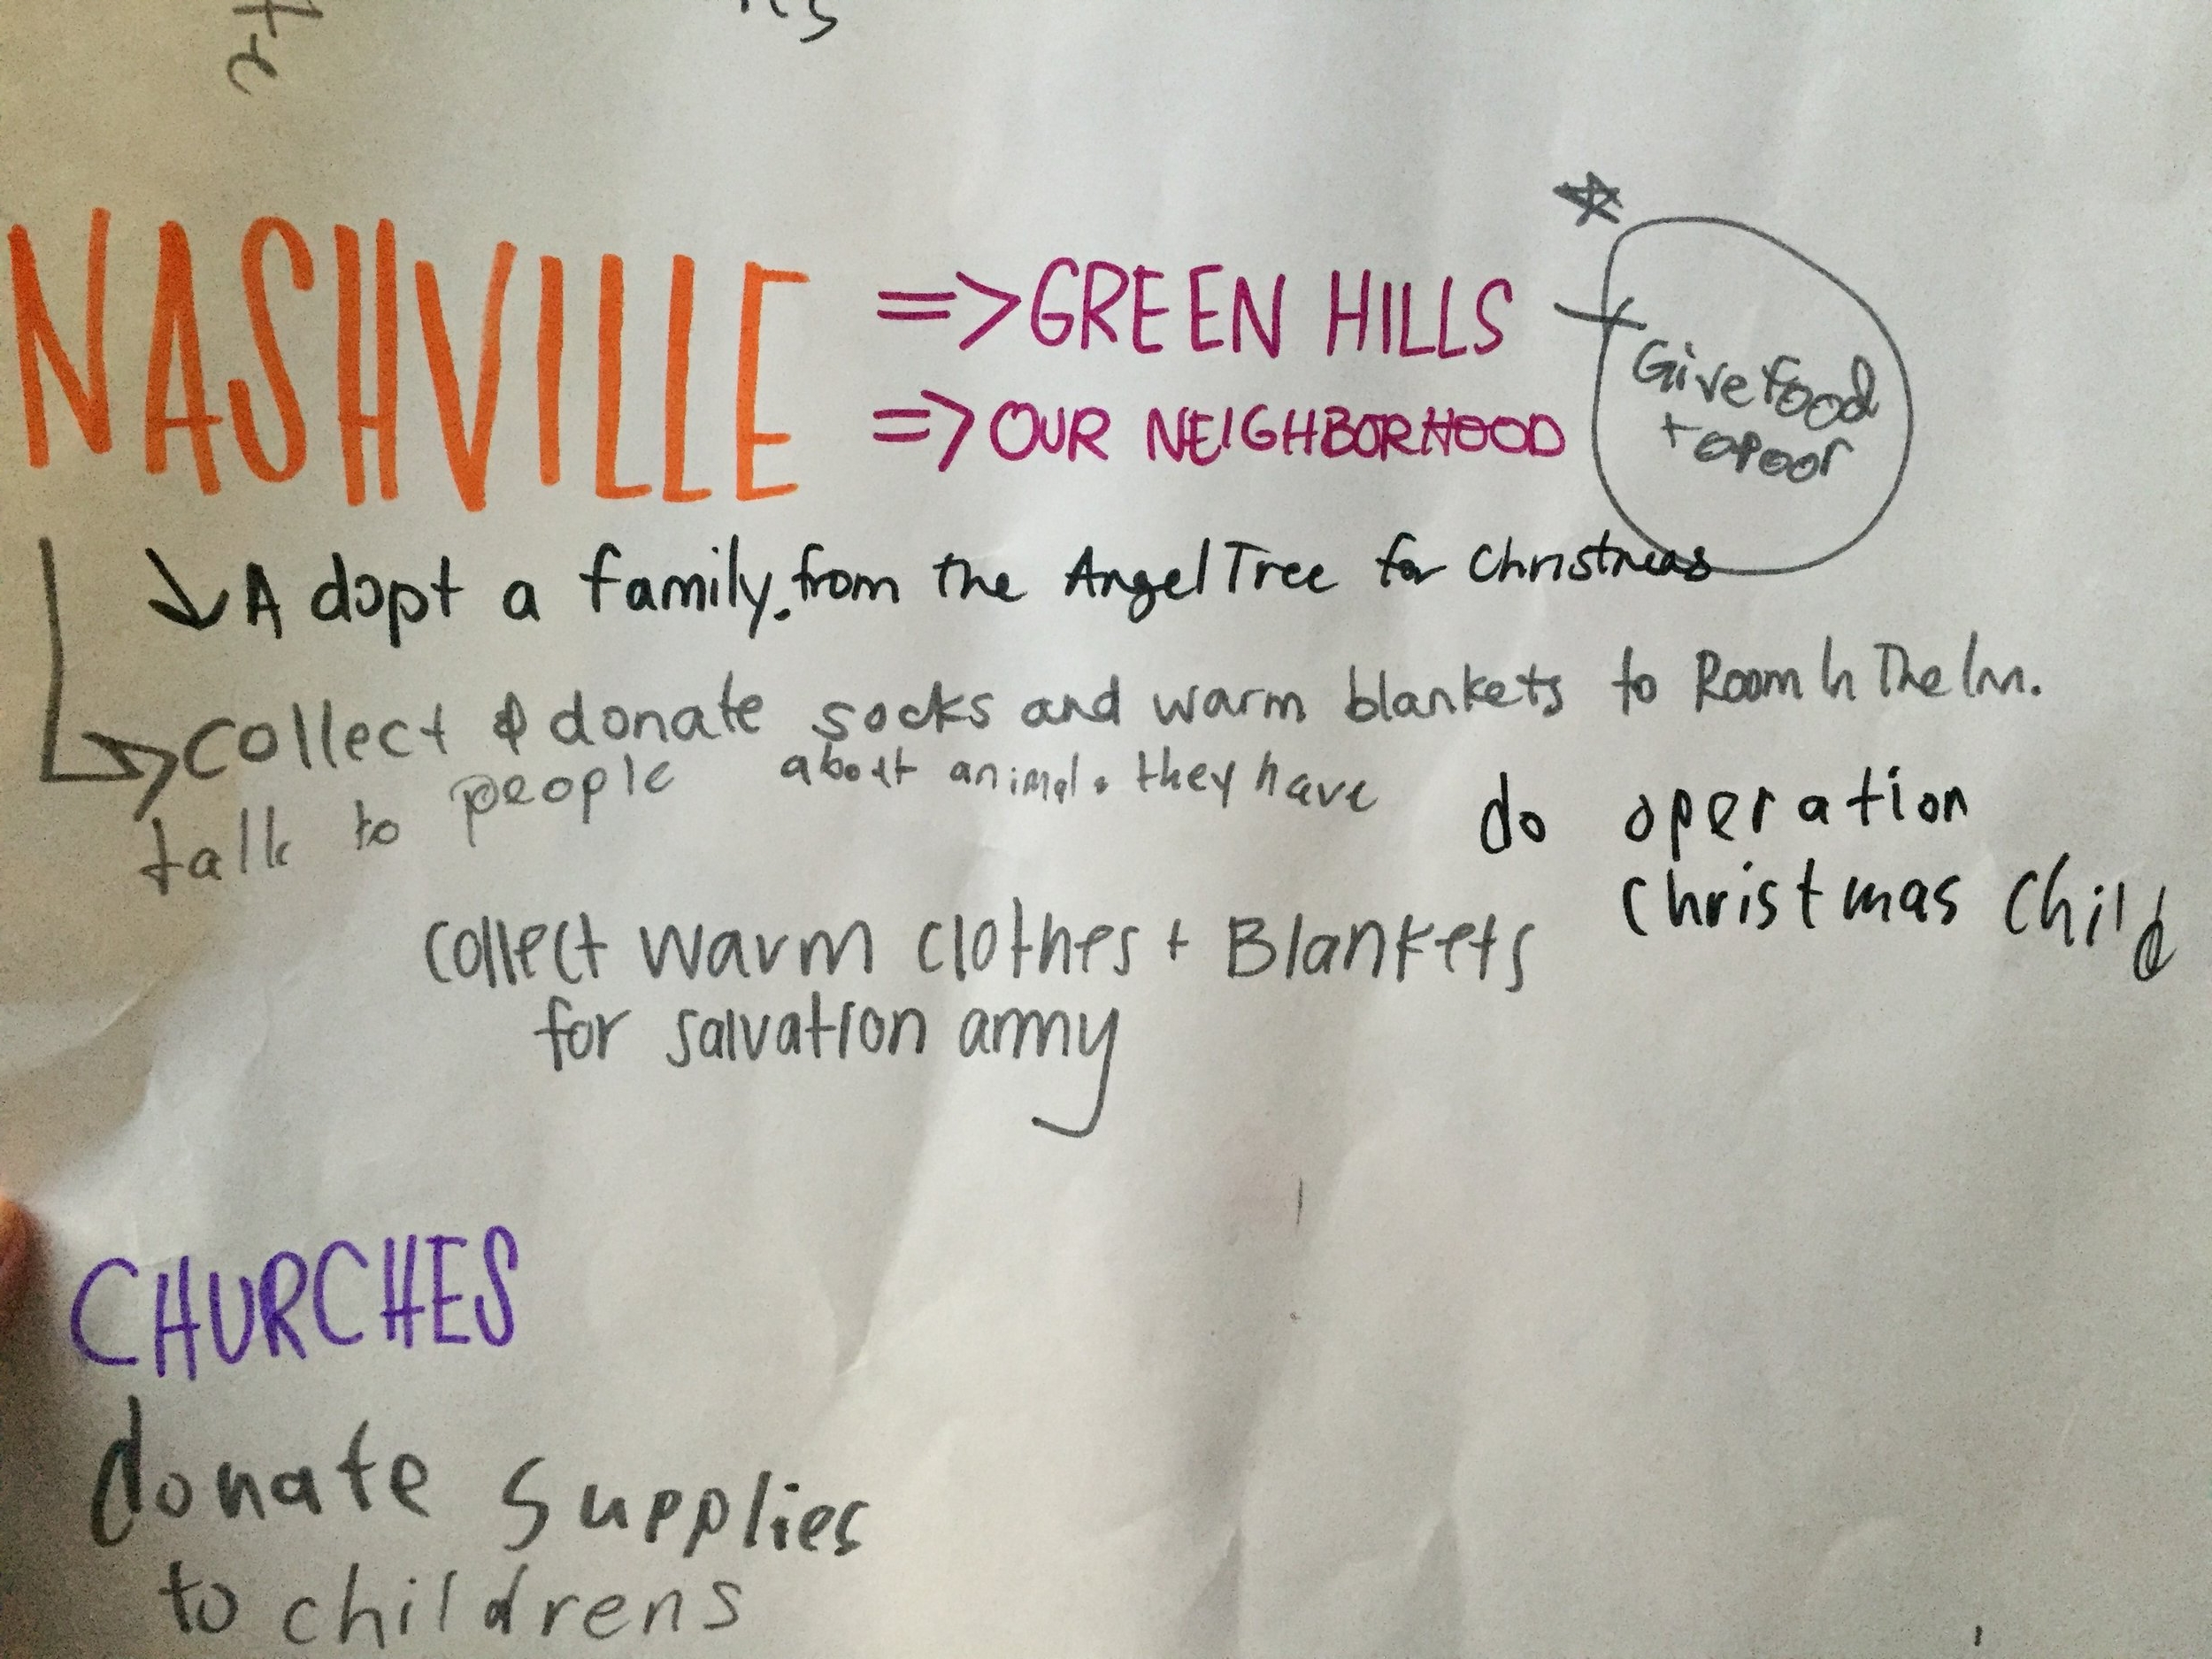 NASHVILLE
=> GREEN HILLS
=> OUR NEIGHBORHOOD
Give food
to poor
Adopt a family. from the Angel Tree for Christmas
Collect & donate socks and warm blankets to Room In The Inn.
talk to people about animals they have
do operation
christmas child
collect warm clothes + Blankets
for salvation army
CHURCHES
donate supplies
to childrens